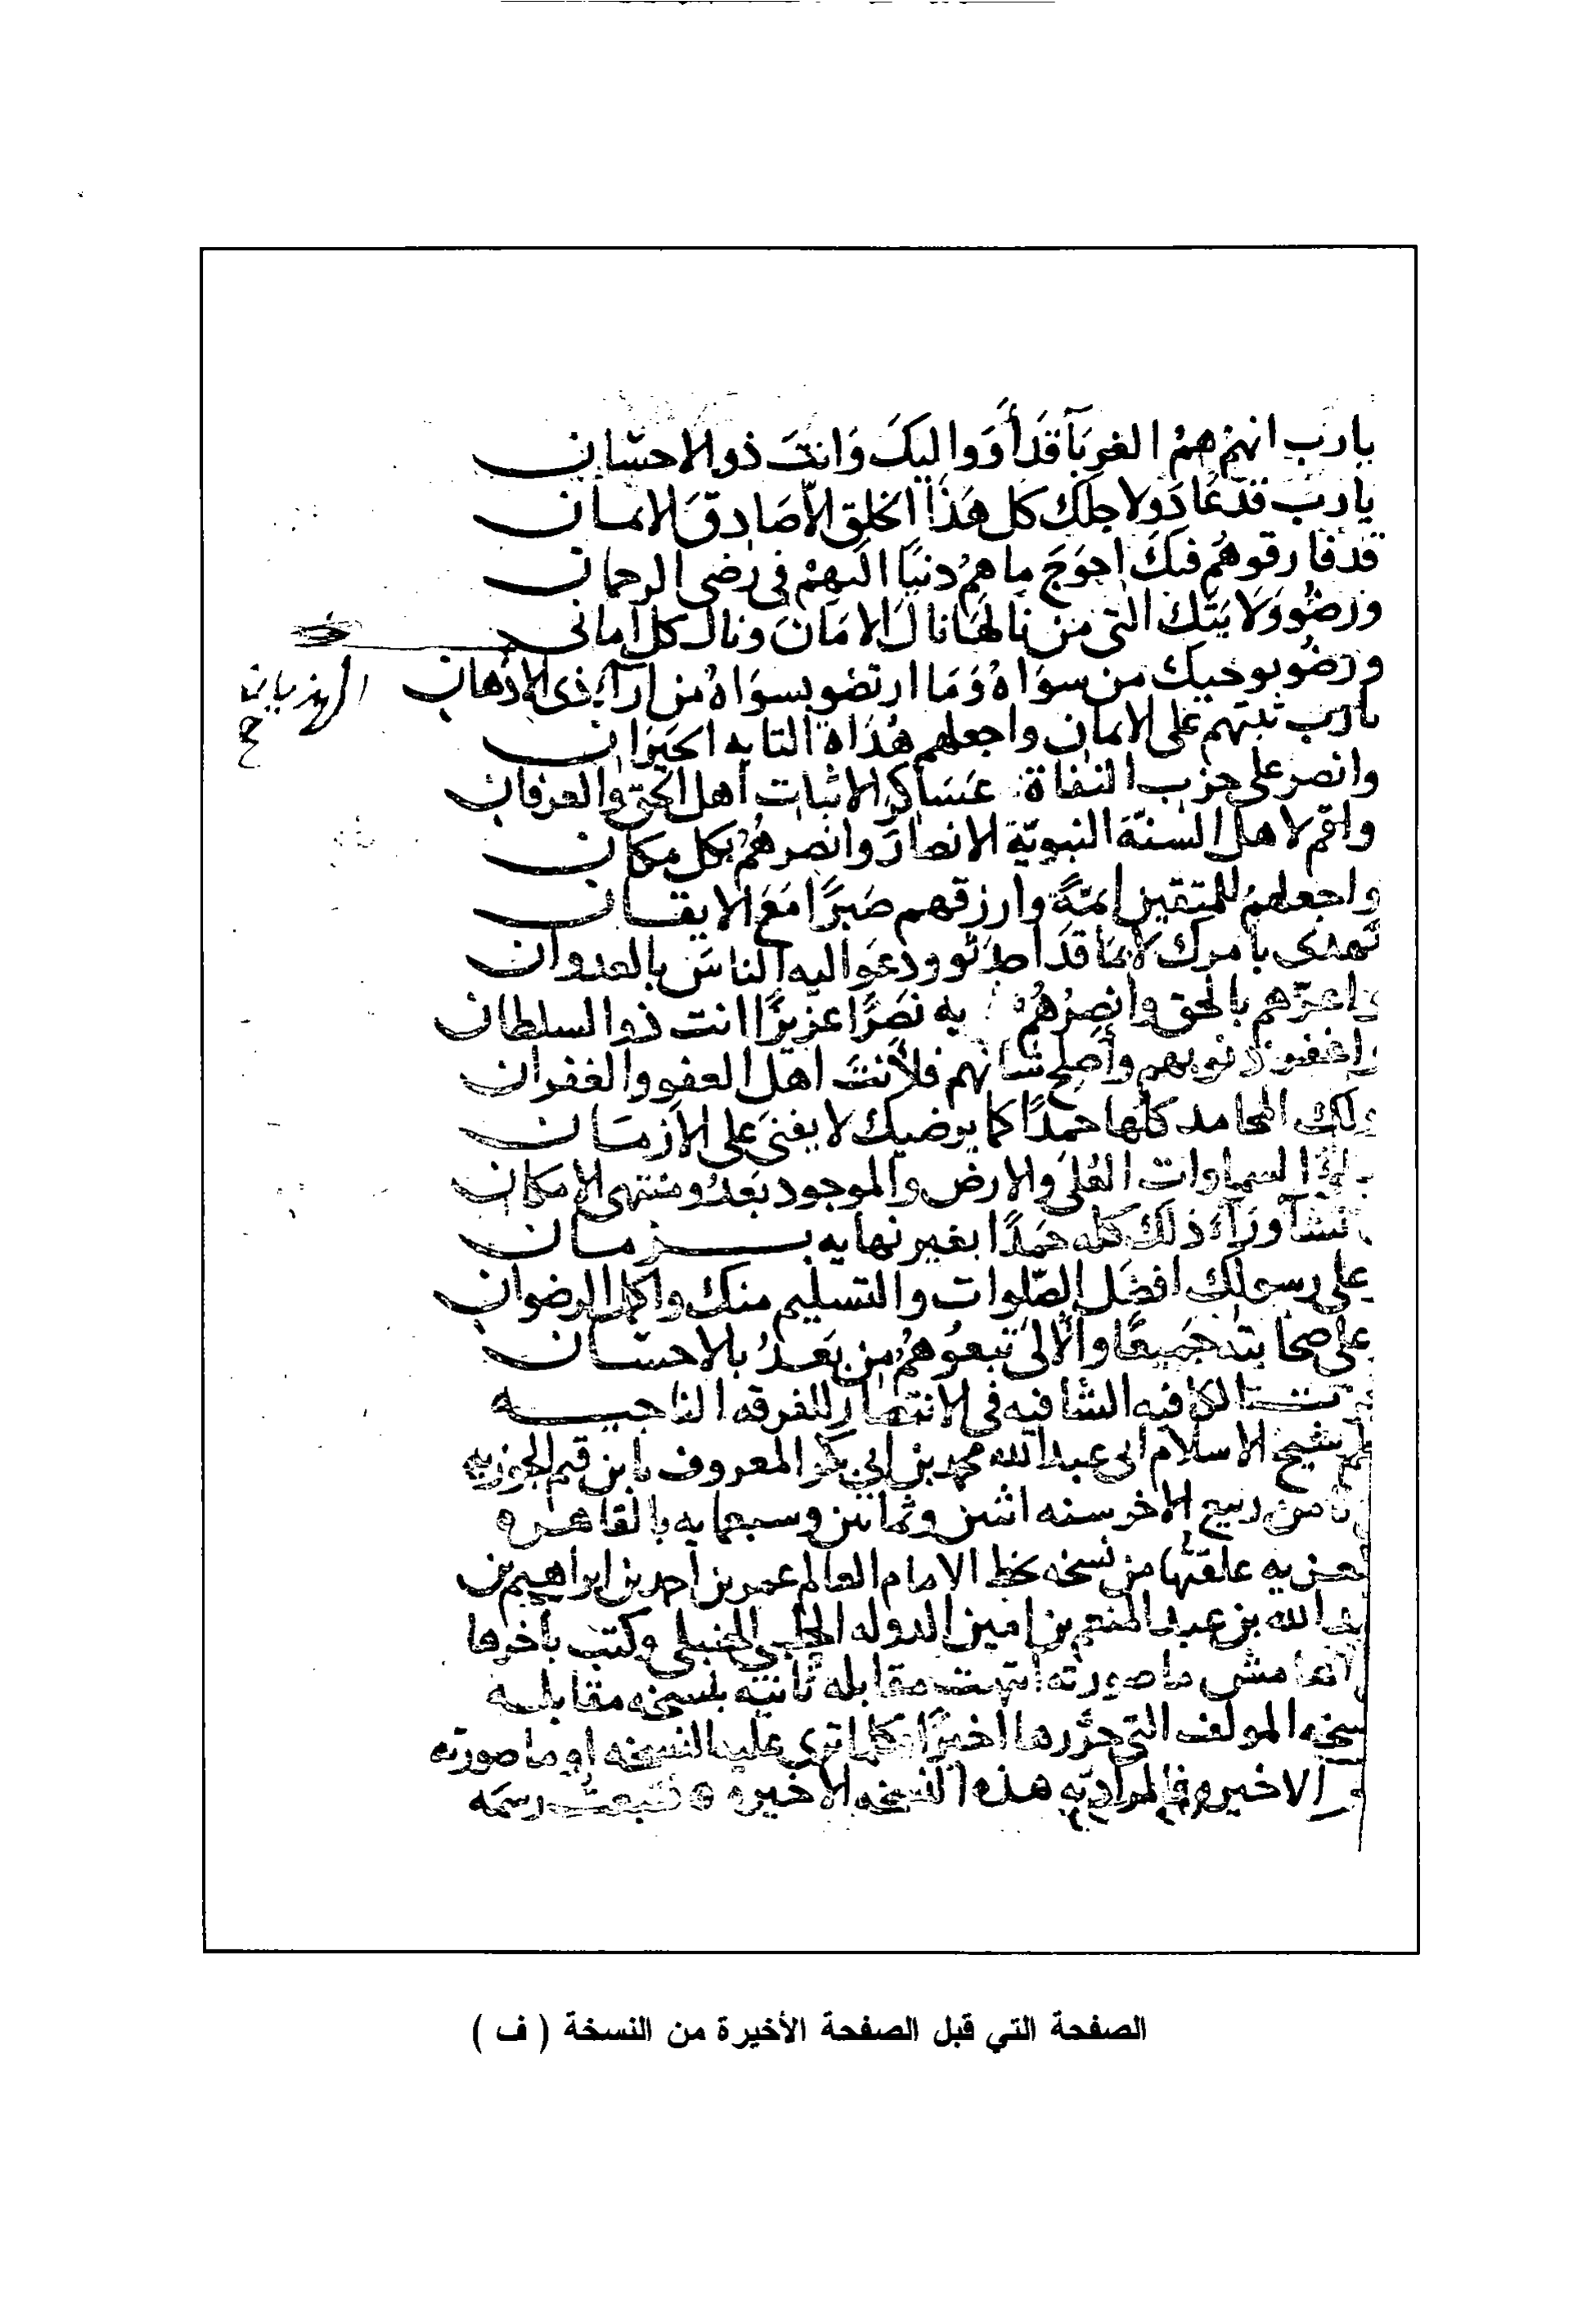 يارب انهم هم الغربآ قد أووا اليك وانت ذو الاحسان
يارب قد عادو لاجلك كل هذا الخلق الا صادق الايمان
قد فارقوهم فيك احوج ما هم دنيا اليهم في رضى الرحمان
ورضو ولايتك التي من نالها نال الامان ونال كل اماني
ورضو بوحيك من سواه وما ارتضو بسواه من ارآء ذي الاذهان
الهذيان
خ
يارب ثبتهم على الايمان واجعلهم هداة التايه الحيران
وانصر على حزب النفاة عساكر الاثبات اهل الحق والعرفان
واقم لاهل السنة النبوية الانصار وانصرهم بكل مكان
واجعلهم للمتقين ايمة وارزقهم صبرا مع الايقان
تهدى بامرك لا بما قد احدثو ودعوا اليه الناس بالعدوان
واعزهم بالحق وانصرهم به نصرا عزيزا انت ذو السلطان
واغفر ذنوبهم وأصلح شانهم فلأنت اهل العفو والغفران
ولك المحامد كلها حمدا كما يرضيك لا يفنى على الازمان
السماوات العلى والارض والموجود بعد ومنتهى الامكان
تشآ ورآء ذلك كله حمدا بغير نهايه بزمان
على رسولك افضل الصلوات والتسليم منك واكمل الرضوان
على صحابته جميعا والألى تبعوهم من بعد بالاحسان
تمت الكافيه الشافيه في الانتصار للفرقه الناجيه
شيخ الاسلام ابى عبد الله محمد بن ابي بكر المعروف بابن قيم الجوزيه
ثامن ربيع الاخر سنه اثنين وثمانين وسبعمايه بالقاهره
المعزيه علقتها من نسخه بخط الامام العالم عمر بن احمد بن ابراهيم بن
عبد الله بن عبد المنعم بن امين الدوله الحلبي الحنبلي وكتب باخرها
الهامش ما صورته انتهت مقابله ثانيه بنسخه مقابله
بنسخه المولف التي حررها اخيرا وكلما ترى عليه النسخه او ما صورته
الاخيره فالمراد به هذه النسخه الاخيره فتبعت رسمه
الصفحة التي قبل الصفحة الأخيرة من النسخة ( ف )